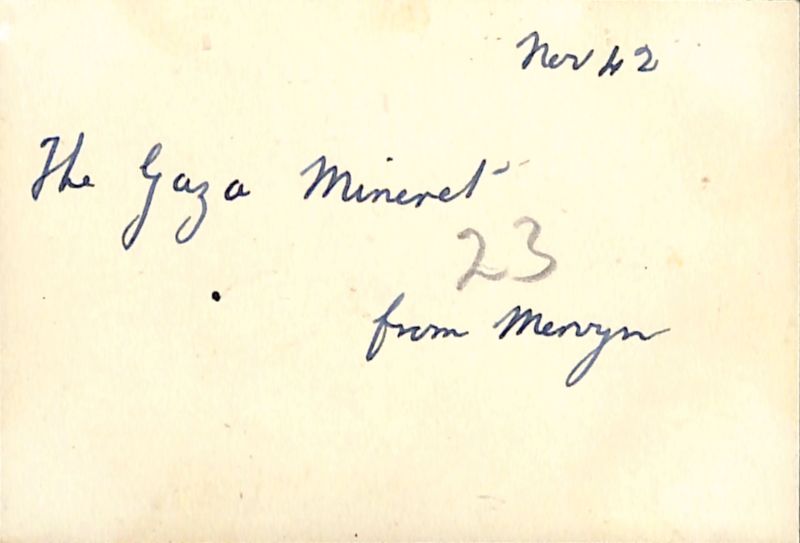 Nov 42
The Gaza Mineret
23
from Mervyn